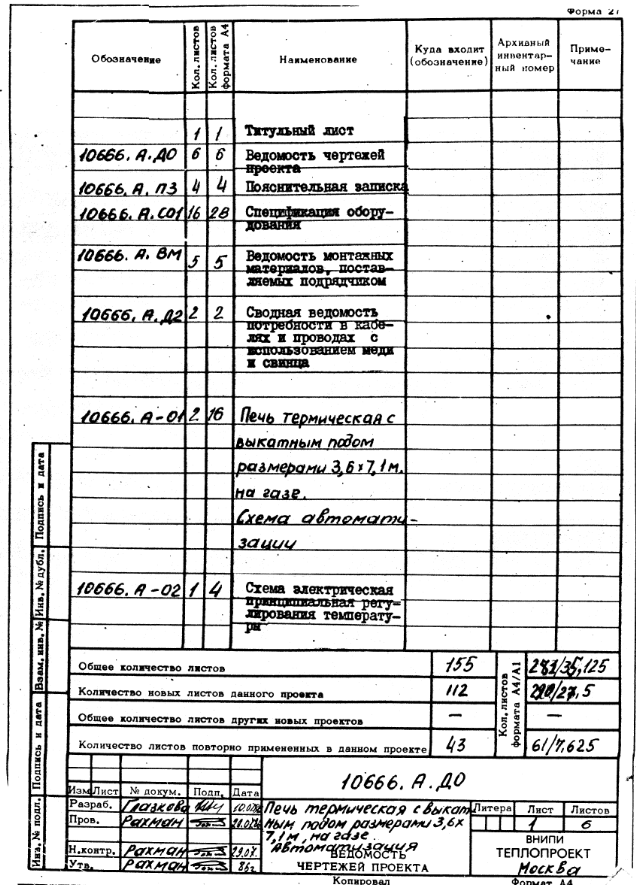 Форма 27
Обозначение Кол. листов Кол. листов формата А4 Наименование Куда входит (обозначение) Архивный инвентар-ный номер Приме-чание
1 1 Титульный лист
10666. А.ДО 6 6 Ведомость чертежей
проекта
10666. А. ПЗ 4 4 Пояснительная записка
10666. А. СО1 16 28 Спецификация обору-
дования
10666. А. ВМ 5 5 Ведомость монтажных
материалов, постав-
ляемых подрядчиком
10666. А. Д2 2 2 Сводная ведомость
потребности в кабе-
лях и проводах с
использованием меди
и свинца
10666. А-01 2 16 Печь термическая с
выкатным подом
размерами 3,6×7,1м.
на газе.
Схема автомати-
зации
10666. А-02 1 4 Схема электрическая
принципиальная регу-
лирования температу-
ры
Общее количество листов 155
Количество новых листов данного проекта 112
Общее количество листов других новых проектов —
Количество листов повторно примененных в данном проекте 43
Кол. листов формата А4/А1
/35,125
/27,5
—
61/7,625
Подпись и дата
Инв. № дубл.
Взам. инв. №
Подпись и дата
Инв. № подл.
10666. А.ДО
Изм Лист № докум. Подп. Дата
Разраб. Глазкова
Пров. Рахман
Н.контр. Рахман 29.07
Утв. Рахман 86г
Печь термическая с выкат
ным подом размерами 3,6×
7,1м, на газе.
Автоматизация
ВЕДОМОСТЬ
ЧЕРТЕЖЕЙ ПРОЕКТА
Литера Лист Листов
1 6
ВНИПИ
ТЕПЛОПРОЕКТ
Москва
Копировал Формат А4